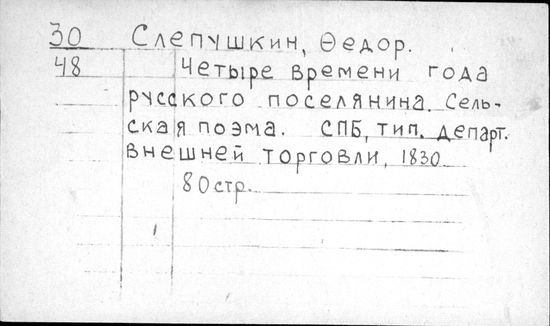 30 Слепушкин, Ѳедор.
48 Четыре времени года
русского поселянина. Сель-
ская поэма. СПБ, тип. департ.
внешней торговли, 1830
80 стр.